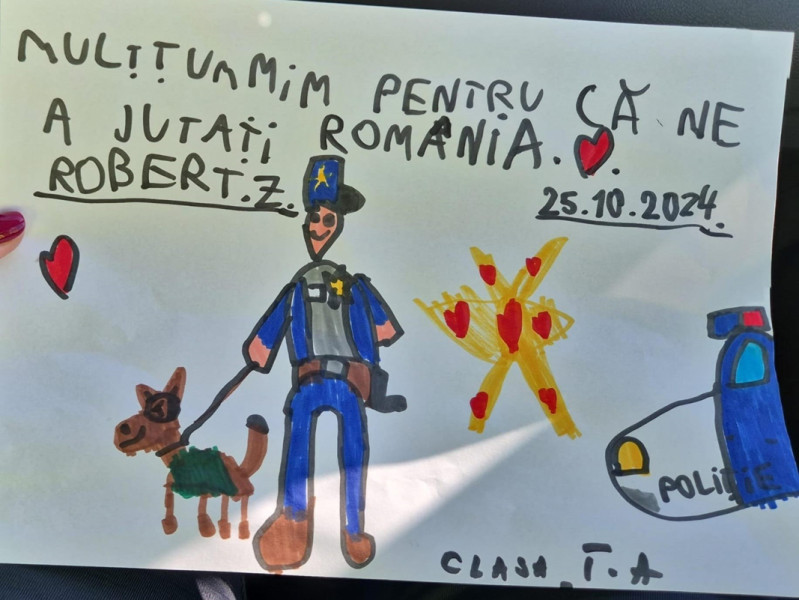 MULȚTUMMIM PENTRU CĂ NE
A JUTAȚI ROMÂNIA.
ROBERT.Z.
25.10.2024.
POLIȚIE
CLASA I.A